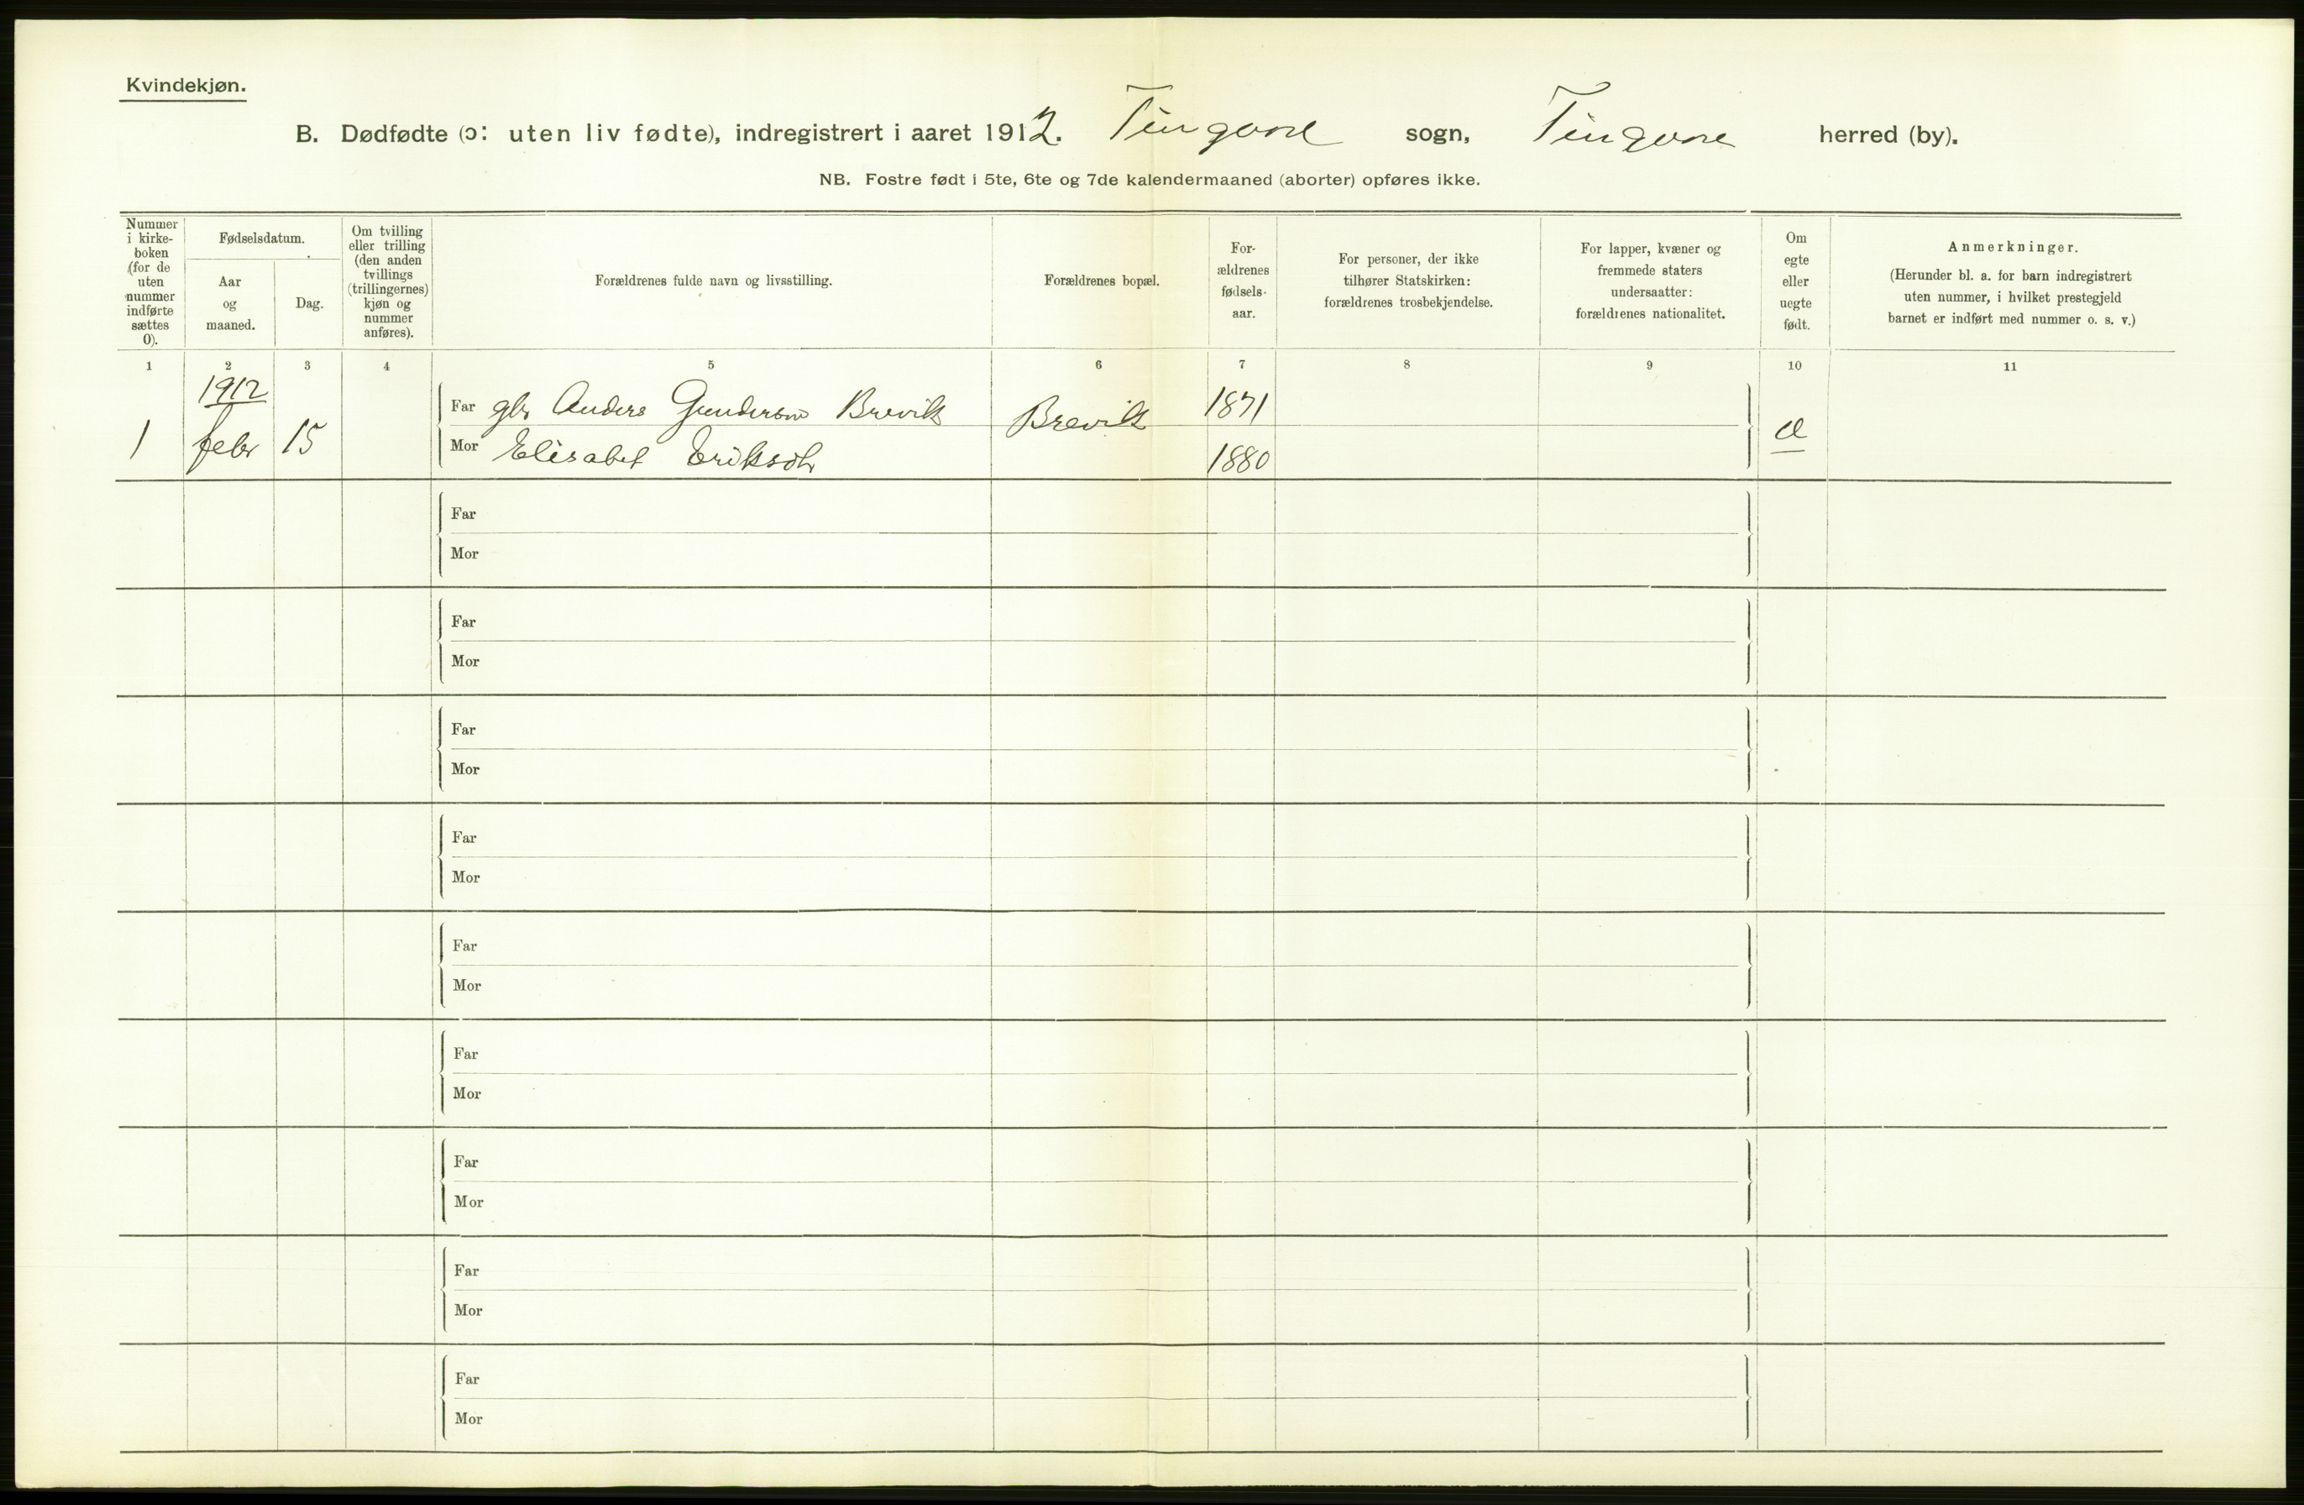 Kvindekjøn.
B. Dødfødte (ɔ: uten liv fødte), indregistrert i aaret 1912. Tingvoll sogn, Tingvoll herred (by).
NB. Fostre født i 5te, 6te og 7de kalendermaaned (aborter) opføres ikke.
Nummer
i kirke-
boken
(for de
uten
nummer
indførte
sættes
0).
Fødselsdatum.
Aar
og
maaned.
Dag.
Om tvilling
eller trilling
(den anden
tvillings
(trillingernes)
kjøn og
nummer
anføres).
Forældrenes fulde navn og livsstilling.
Forældrenes bopæl.
For-
ældrenes
fødsels-
aar.
For personer, der ikke
tilhører Statskirken:
forældrenes trosbekjendelse.
For lapper, kvæner og
fremmede staters
undersaatter:
forældrenes nationalitet.
Om
egte
eller
uegte
født.
Anmerkninger.
(Herunder bl. a. for barn indregistrert
uten nummer, i hvilket prestegjeld
barnet er indført med nummer o. s. v.)
1 2 3 4 5 6 7 8 9 10 11
1912
Far gbr Anders Gunderson Brevik Brevik 1871
1 febr 15
Mor Elisabet Eriksdtr 1880
Far
Mor
Far
Mor
Far
Mor
Far
Mor
Far
Mor
Far
Mor
Far
Mor
Far
Mor
Far
Mor